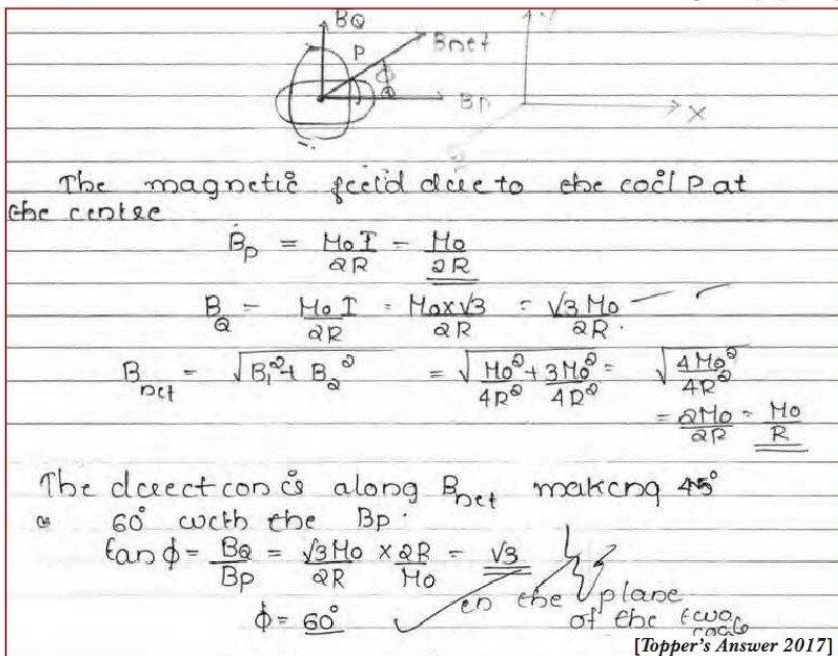 BQ
P
Bnet
ϕ
BP
Y
X
The magnetic field due to the coil P at
the centre
B_P = μ₀I/2R = μ₀/2R
B_Q = μ₀I/2R = μ₀×√3/2R = √3μ₀/2R.
B_net = √(B₁² + B₂²) = √(μ₀²/4R² + 3μ₀²/4R²) = √(4μ₀²/4R²)
= 2μ₀/2R = μ₀/R
The direction is along B_net making 45°
60° with the Bp.
tan ϕ = B_Q/B_P = √3μ₀/2R × 2R/μ₀ = √3
ϕ = 60°
in the plane
of the two
[Topper's Answer 2017]